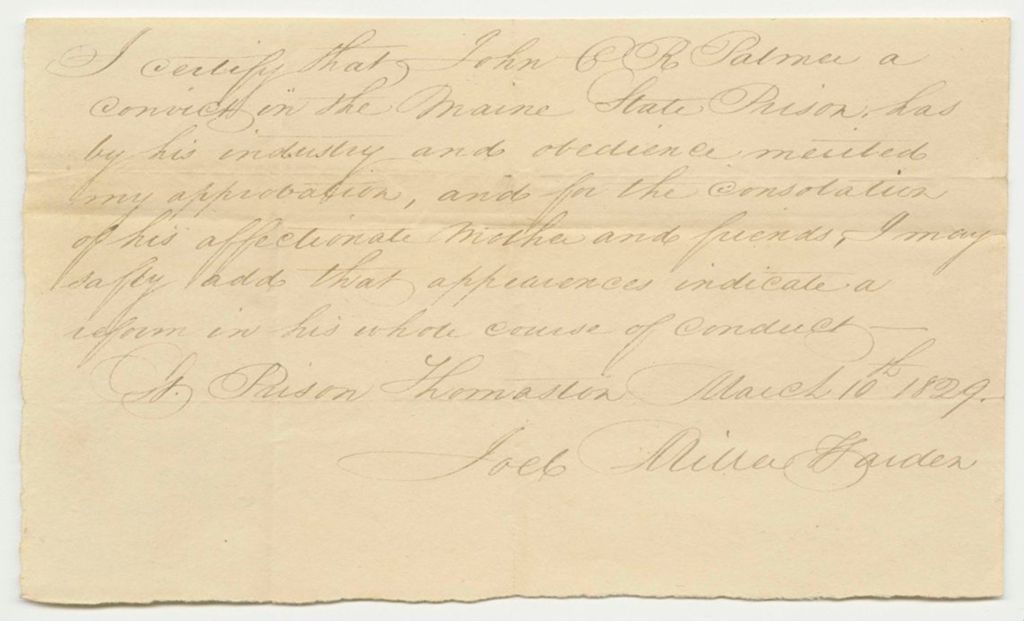 I certify that John C R Palmer a
convict in the Maine State Prison, has
by his industry and obedience merited
my approbation, and for the consolation
of his affectionate Mother and friends, I may
safty add that appearences indicate a
reform in his whole course of conduct —
St. Prison Thomaston March 10th 1829.
Joel Miller Warden